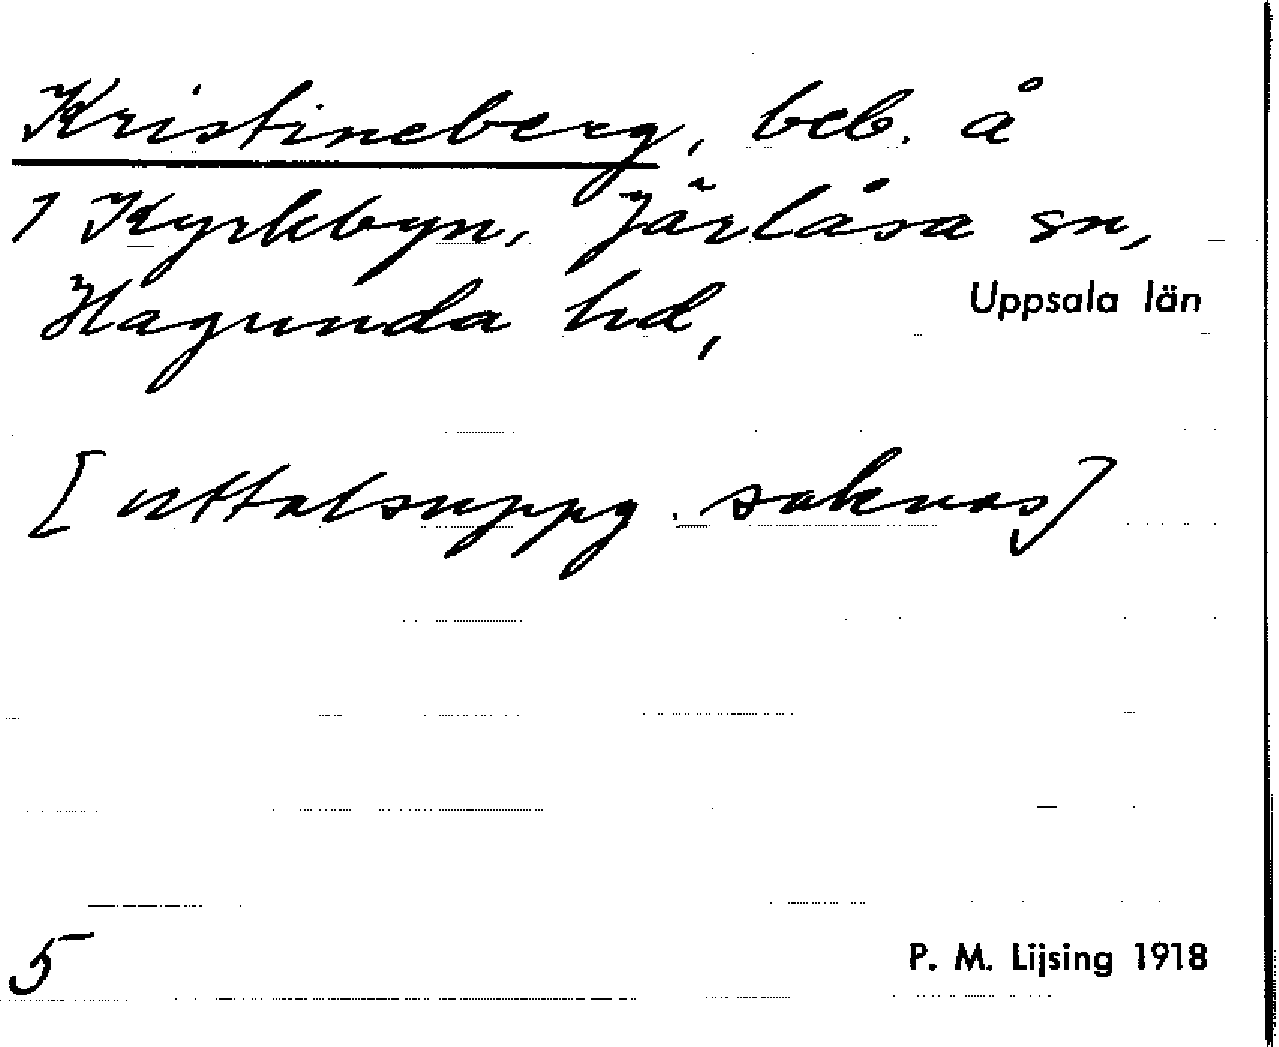 Kristineberg, beb. å
1 Kyrkbyn, Järlåsa sn,
Hagunda hd, Uppsala län
[uttalsuppg. saknas]
5 P. M. Lijsing 1918